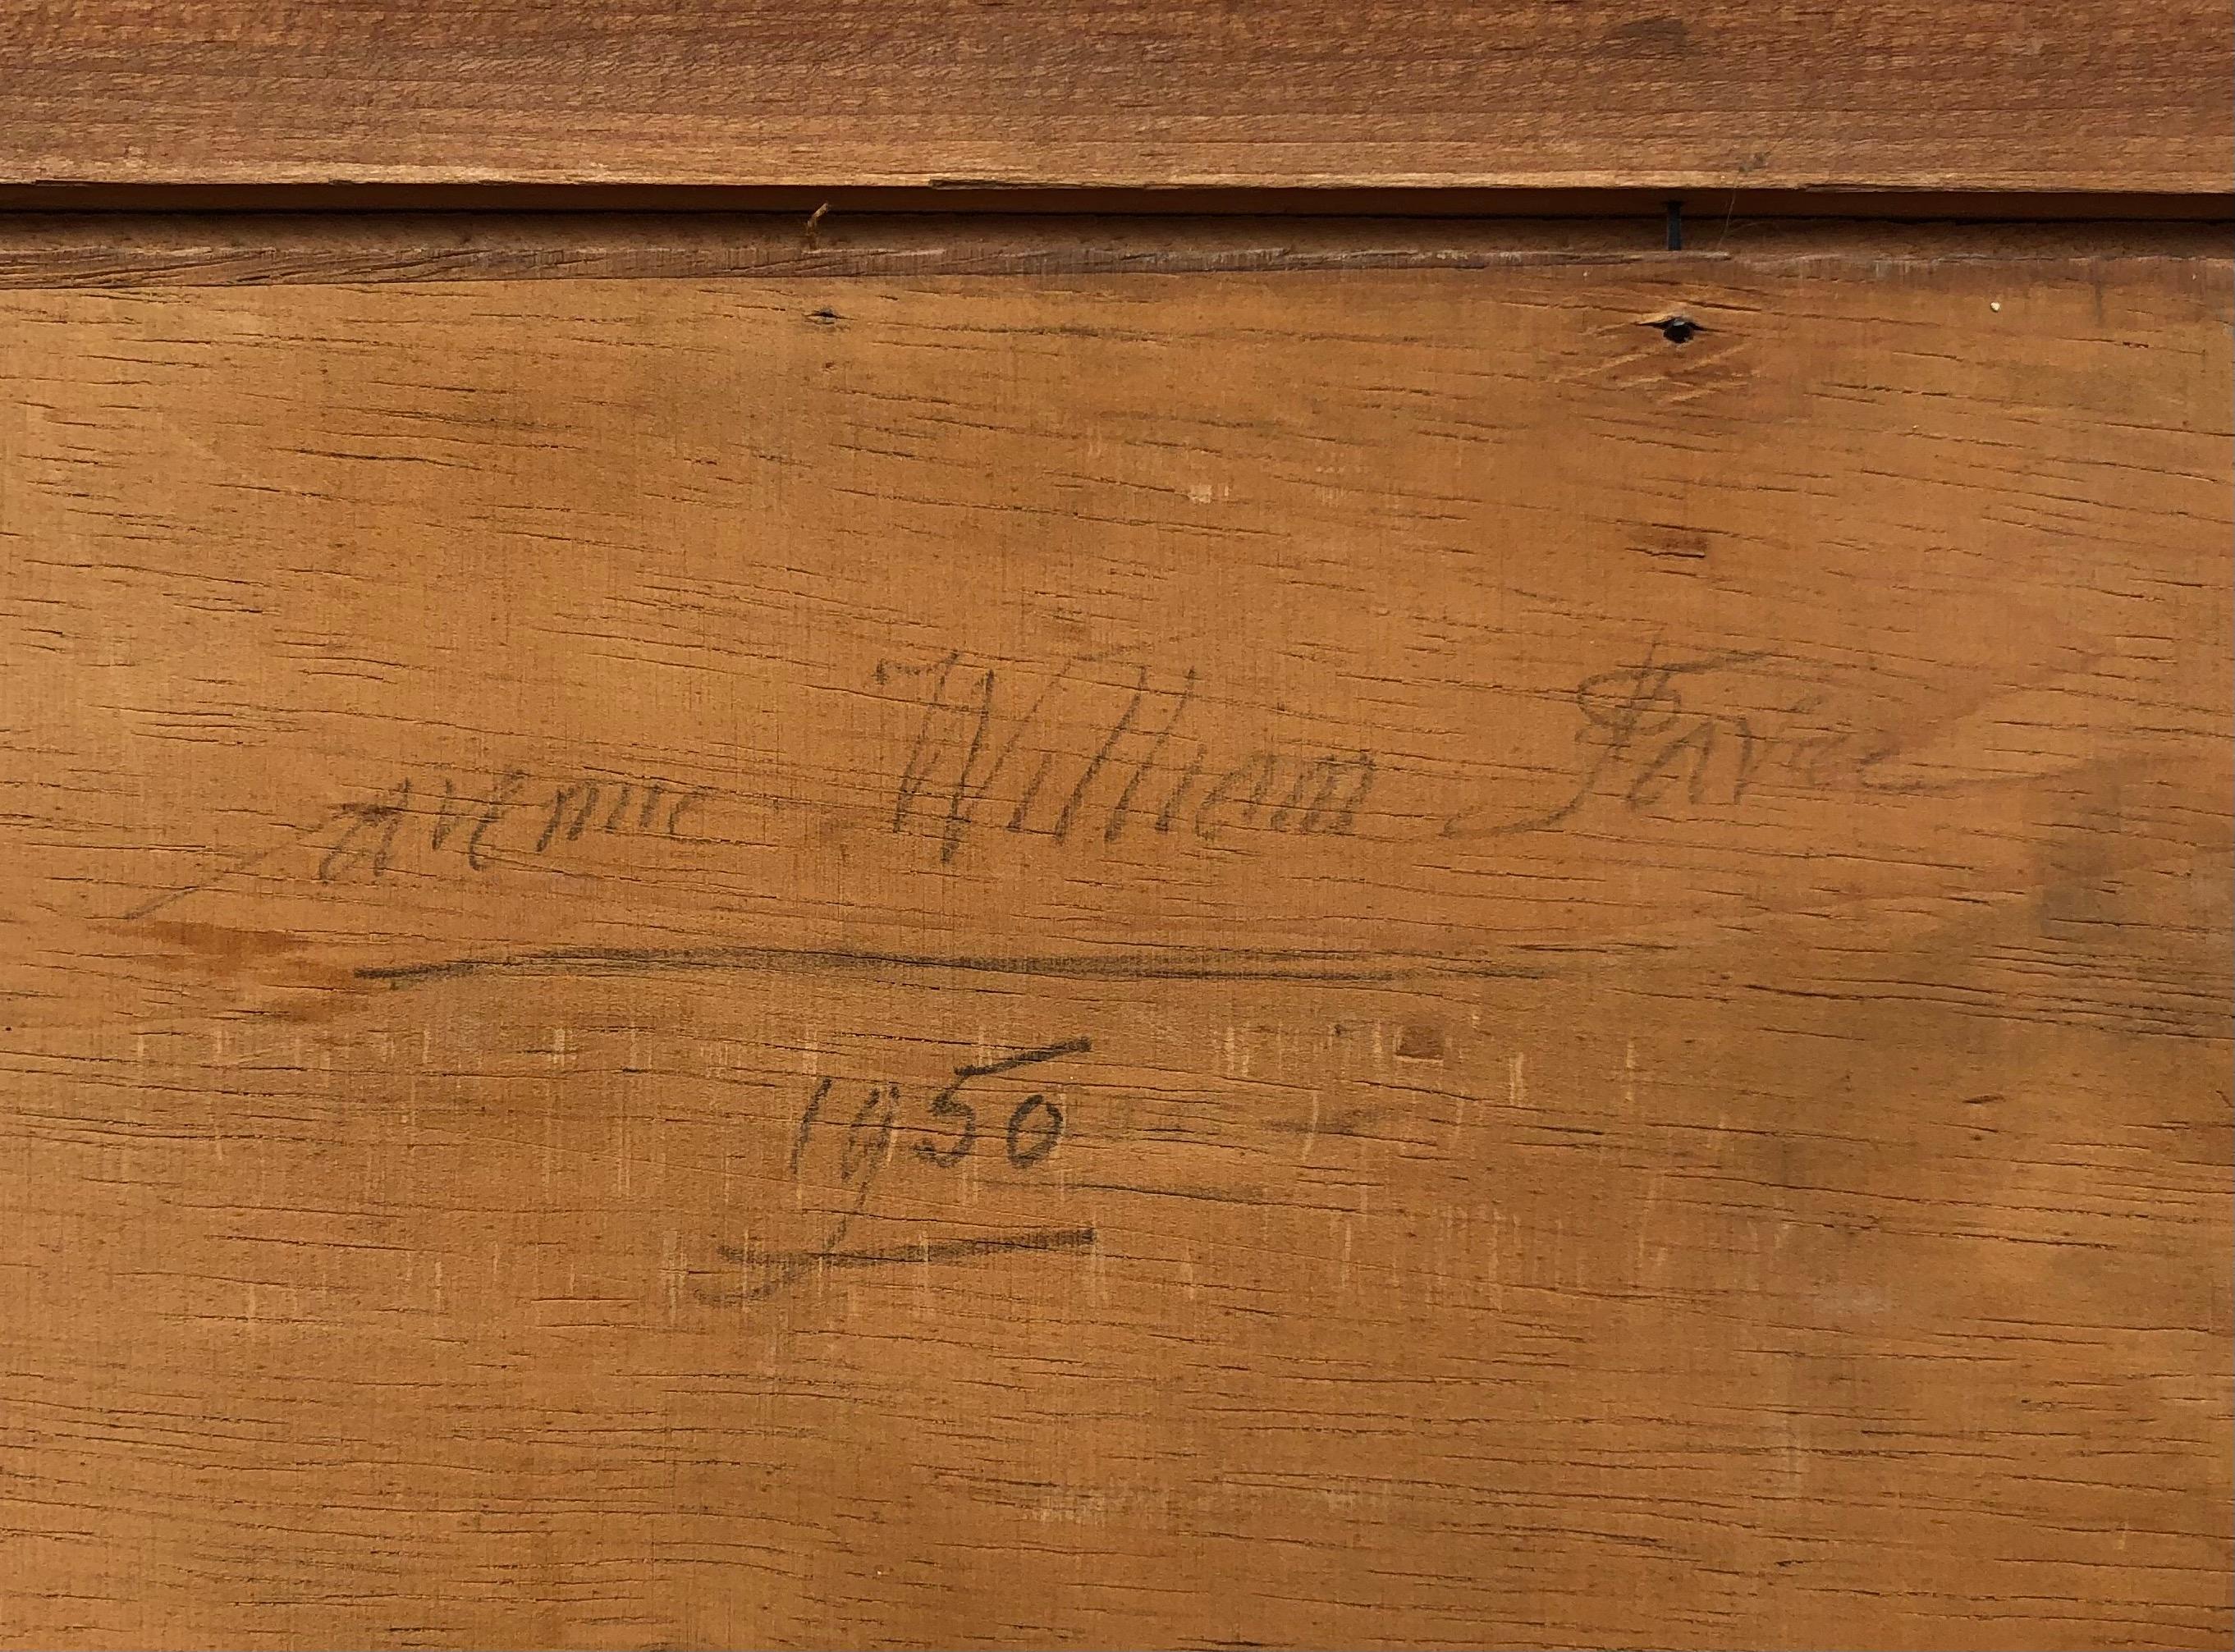 avenue William Favre
1950